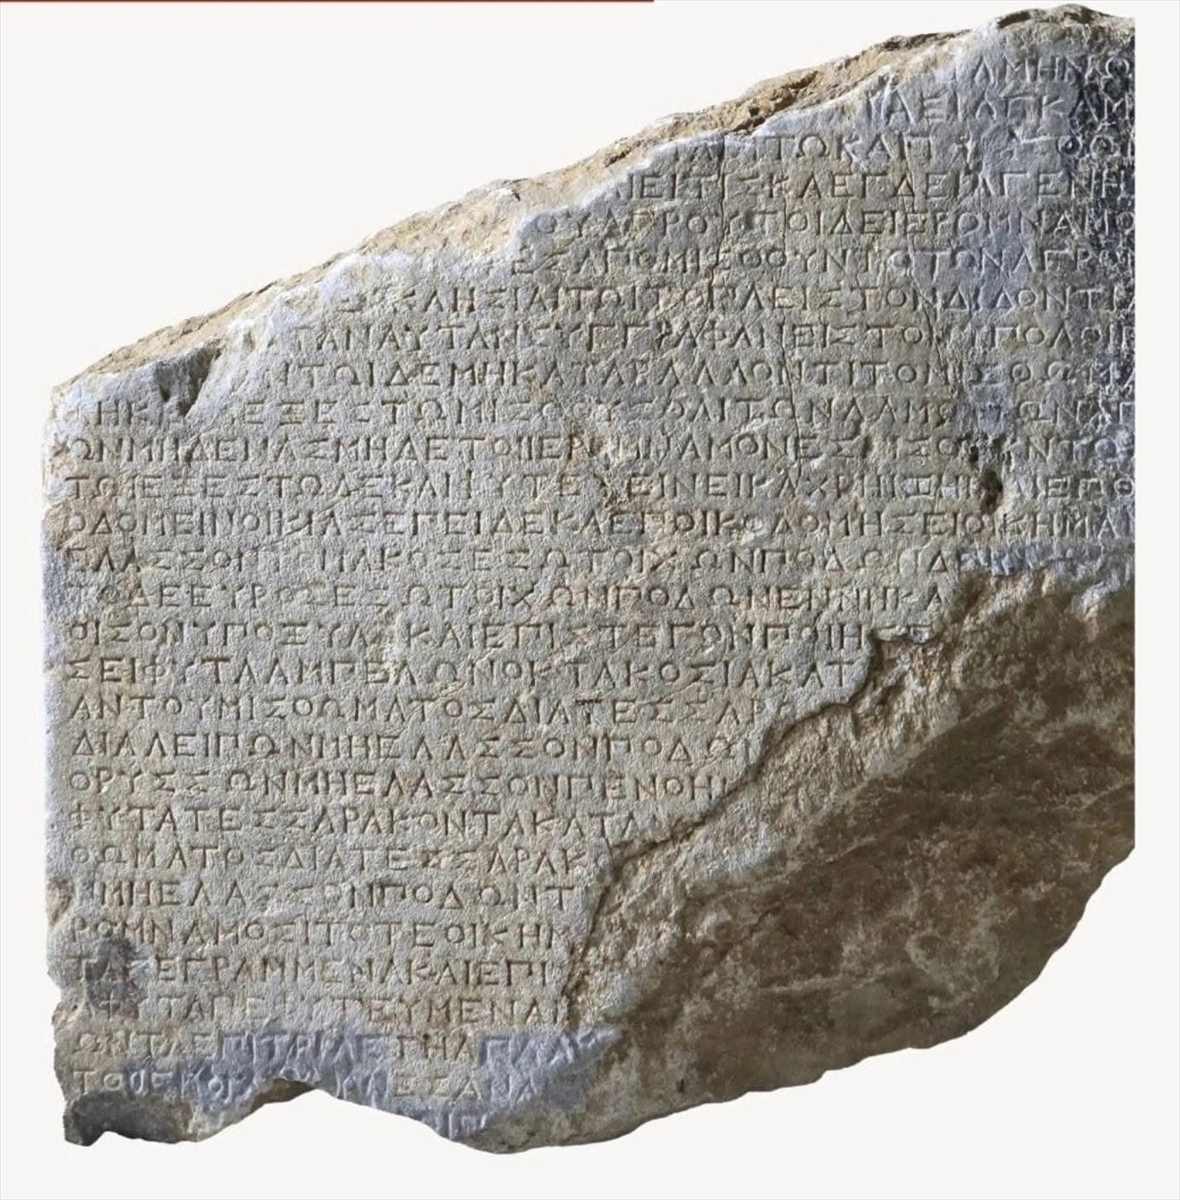 ΑΜΗΝΚΩ
ΑΞΙΩΓΚΑΜ
ΤΩΚΑΙΠ
ΕΙΤΙΣΚΑΕΓΔΕΙΑΓΕΝΗ
ΟΥΔΑΡΟΥΤΟΙΔΕΙΕΡΟΜΝΑΜΟ
ΕΣΑΠΟΜΙΣΘΟΥΝΤΩΤΟΝΑΓΡΟ
ΚΛΗΣΙΑΙΤΩΙΤΟΠΛΕΙΣΤΟΝΔΙΔΟΝΤΙ
ΤΑΝΑΥΤΑΝΣΥΓΓΡΑΦΑΝΕΙΣΤΟΝΥΠΟΛΟΙΠ
ΝΤΩΙΔΕΜΗΚΑΤΑΒΑΛΛΟΝΤΙΤΟΜΙΣΘΩΜΑ
ΜΗΚΕΤΕΞΕΣΤΩΜΙΣΘΟΥΣΘΑΙΤΩΝΔΑΜΟΣΙΩΝΑΓ
ΡΩΝΜΗΔΕΝΑΣΜΗΔΕΤΟΙΙΕΡΟΜΝΑΜΟΝΕΣΜΙΣΘΟΥΝΤΩ
ΤΩΙΕΞΕΣΤΩΔΕΚΑΙΦΥΤΕΥΕΙΝΕΙΚΑΧΡΗΙΞΗΙΚΑΙΕΠΟ
ΟΔΟΜΕΙΝΟΙΚΙΑΣΕΠΕΙΔΕΚΑΕΠΟΙΚΟΔΟΜΗΣΕΙΟΙΚΗΜΑ
ΕΛΑΣΣΟΝΤΟΜΑΚΟΣΕΣΩΤΟΙΧΩΝΠΟΔΩΝΔ
ΤΟΔΕΕΥΡΟΣΕΣΩΤΟΙΧΩΝΠΟΔΩΝΕΝΝΗΚΑ
ΟΙΣΟΝΥΠΟΞΥΛΑΚΑΙΕΠΙΣΤΕΓΟΝΠΟΙΗΣΕ
ΣΕΙΦΥΤΑΑΜΠΕΛΩΝΟΚΤΑΚΟΣΙΑΚΑΤ
ΑΝΤΟΥΜΙΣΘΩΜΑΤΟΣΔΙΑΤΕΣΣΑΡΟ
ΔΙΑΛΕΙΠΩΝΜΗΕΛΑΣΣΟΝΠΟΔΩΝ
ΟΡΥΣΣΩΝΜΗΕΛΑΣΣΟΝΠΕΝΘΗΜ
ΦΥΤΑΤΕΣΣΑΡΑΚΟΝΤΑΚΑΤΑ
ΘΩΜΑΤΟΣΔΙΑΤΕΣΣΑΡΑΚΟ
ΝΜΗΕΛΑΣΣΟΝΠΟΔΩΝΤ
ΡΟΜΝΑΜΟΣΙΤΟΤΕΟΙΚΗΜ
ΤΑΓΕΓΡΑΜΜΕΝΑΚΑΙΕΠΙ
ΑΦΥΤΑΠΕΦΥΤΕΥΜΕΝΑΚ
ΩΝΤΑΕΠΙΤ
ΕΣΣΑΝΑ